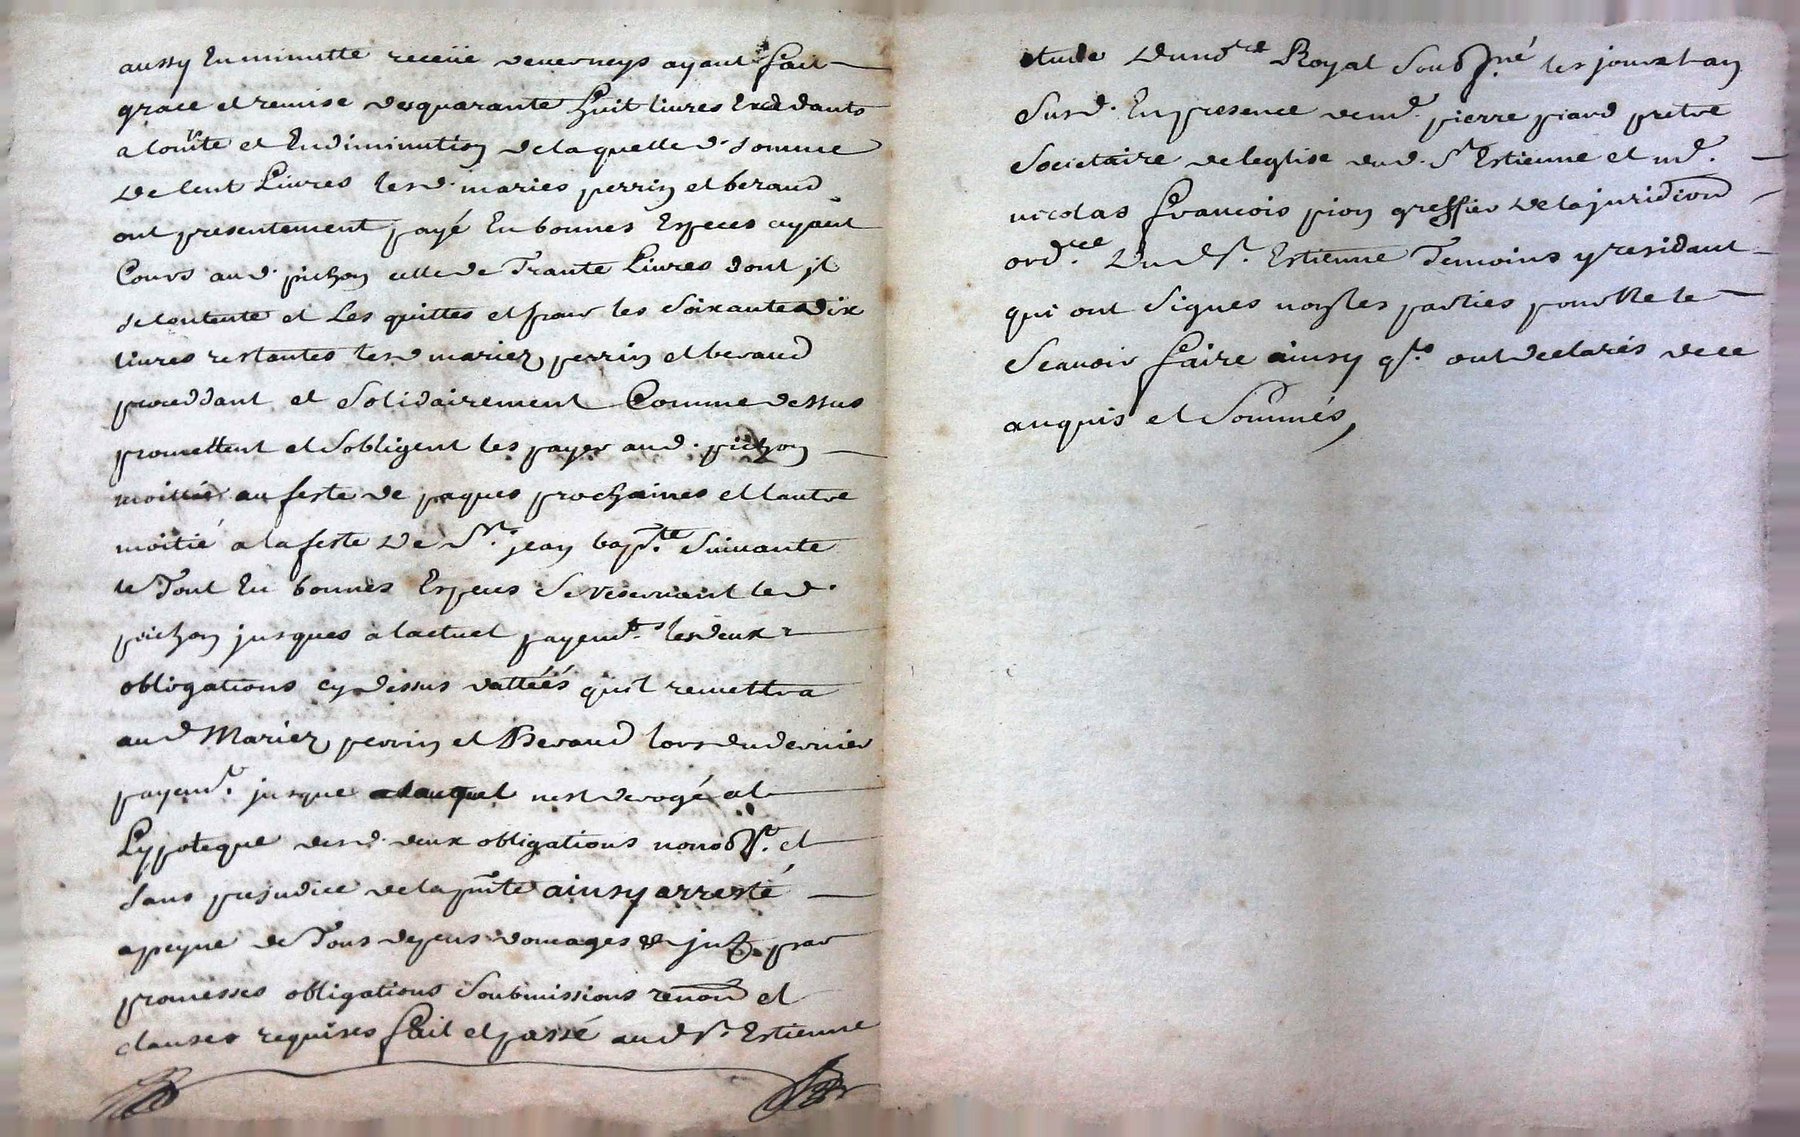 aussy En minutte receüe deverneys ayant fait
grace et remise des quarante huit livres Excedants
a loütte et En diminution de laquelle d. somme
de Cent Livres lesd. maries perrin et beraud
ont presentement payé En bonnes Especes ayant
Cours aud. pichon celle de Trante Livres dont jl
se contente et Les quittes et pour les soixante dix
livres restantes lesd mariez perrin et beraud
proceddant et solidairement Comme dessus
promettent et sobligent les payer aud. pichon
moittié au feste de paques prochaines et lautre
moitié a la feste de St. jean bapte. suivante
le Tout En bonnes Especes se reservant led.
pichon jusques a lactuel payemt. lesdeux
obligations cy dessus dattéés quil remettra
aud Mariez perrin et Beraud lors du dernier
payemt. jusque auquel nest derogé al
hypoteque desd. deux obligations nonobst. et
sans prejudice de la pnte ainsy arresté
a peyne de Tous depens domages & par
promesses obligations soubmissions renon et
clauses requises fait et passé aud St. Estienne
etude dud Royal soubsné les jour et an
susd. En presence de md. pierre piard pretre
societaire de leglise dud. St Estienne et md.
nicolas francois pion greffier de la juridiond
ordre. Dud St. Estienne Temoins y residant
qui ont signes non les parties pour ne le
scavoir faire ainsy qls ont declarés de ce
anquis et sommés,